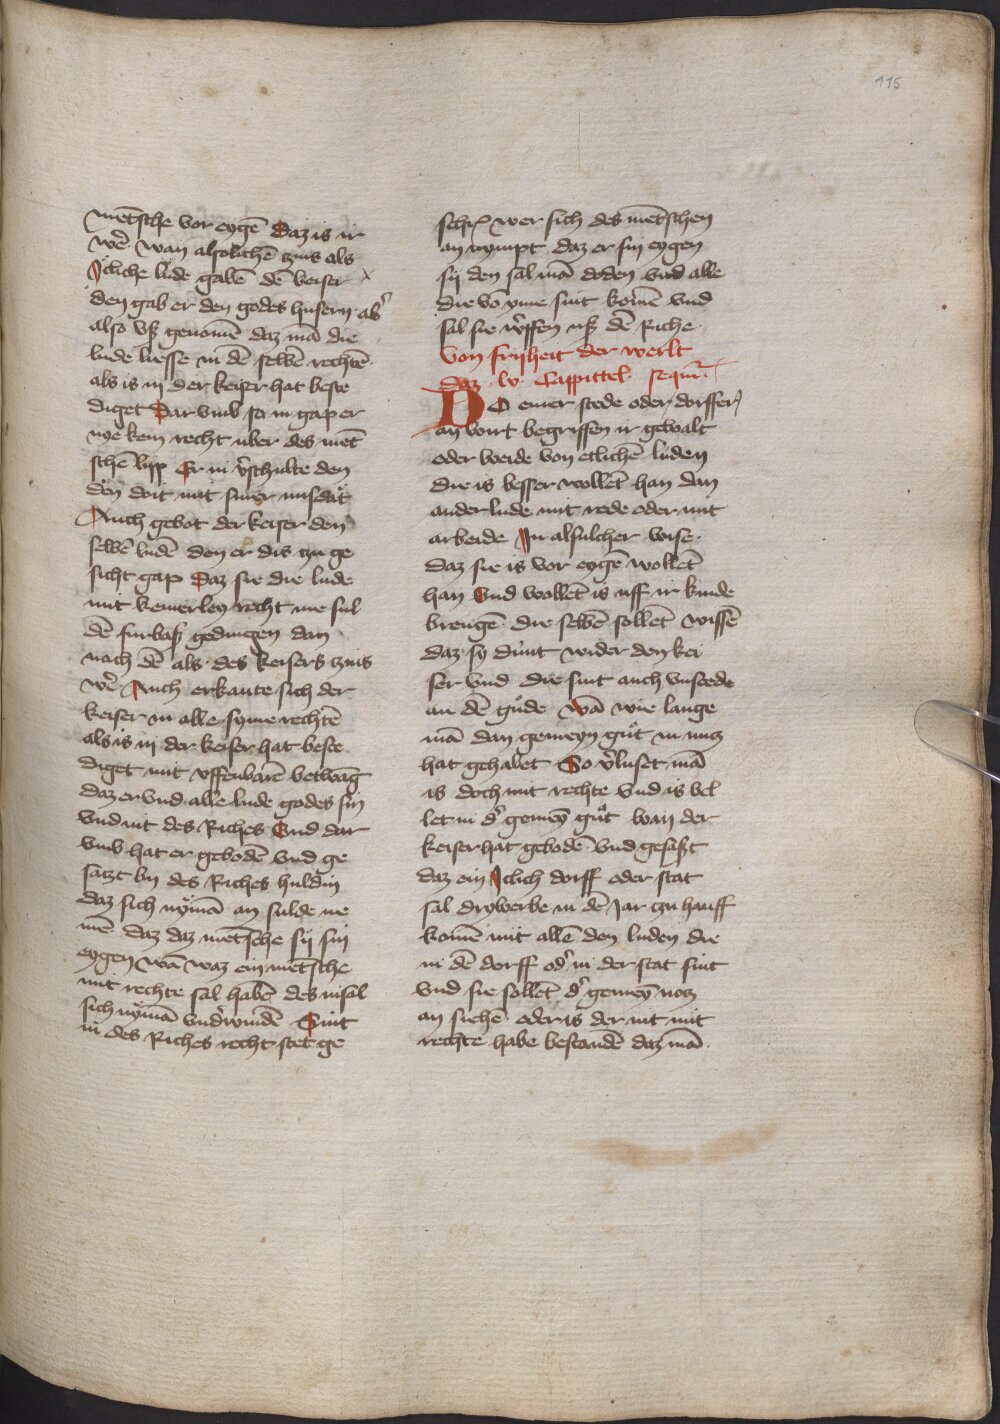 115
mētsche vor eygē Daz is ir
wē wan alsolichē zins als
Icliche lude gabē dē keiser
den gab er den godes husern ab̕
also vß genomē daz mā die
lude liesse in dē selbē rechtē
als is in der keiser hat beste
diget Dar vmb so in gap er
nye kein recht uber des met
schē lijp Er in v̕schulte den
dē doit mit siner misdat
Auch gebot der keiser den
selbē ludē den er dis zu ge
sicht gap Daz sie die lude
mit keinerley recht me sul
dē furbaß gedingen dan
nach dē als des keisers zins
wē Auch erkante sich der
keiser in alle syme rechtē
als is in der keiser hat beste
diget mit uffenbarē betwāg
daz er vnd alle lude godes sin
vnd nit des Riches Vnd dar
vmb hat er gebodē vnd ge
satzt by des Riches huldin
daz sich nymā an sulde ne
mē daz daz mētsche sij sin
eygen wā waz ein mētsche
mit rechte sal habē des insal
sich nymā vnd̕windē Sint
in des Riches recht stet ge
schr̕ wer sich des mētschen
an nympt daz er sin eygen
sij den sal mā doden vnd alle
die vō yme sint komē vnd
sal sie w̕ffen uß dē Riche
Von frijheit der werlt
daz lv Cappittel sequit̕
DO einer stede oder dorffer
an wirt begriffen ir gewalt
oder weide von etlichē luden
die is besser wollēt han dan
ander lude mit rede oder mit
arbeide In alsulcher wise
daz sie is vor eygē wollēt
han Vnd wollēt is uff ir kinde
brengē die selbē sollēt wissē
daz sy dunt wider den kei
ser vnd die sint auch vnstede
an dē gude wā wie lange
mā dan gemeyn gut in nutz
hat gehabet So v̕luset mā
is doch mit rechte vnd is vel
let in d̕ gemeȳ gut wan der
keiser hat gebodē vnd gesaßt
daz ein Iclich dorff oder stat
sal drywerbe in dē Jar zu hauff
komē mit allē den luden die
in dē dorff od̕ in der stat sint
vnd sie sollēt d̕ gemeȳ notz
an siehē oder is der nit mit
rechte habe bestandē daz mā